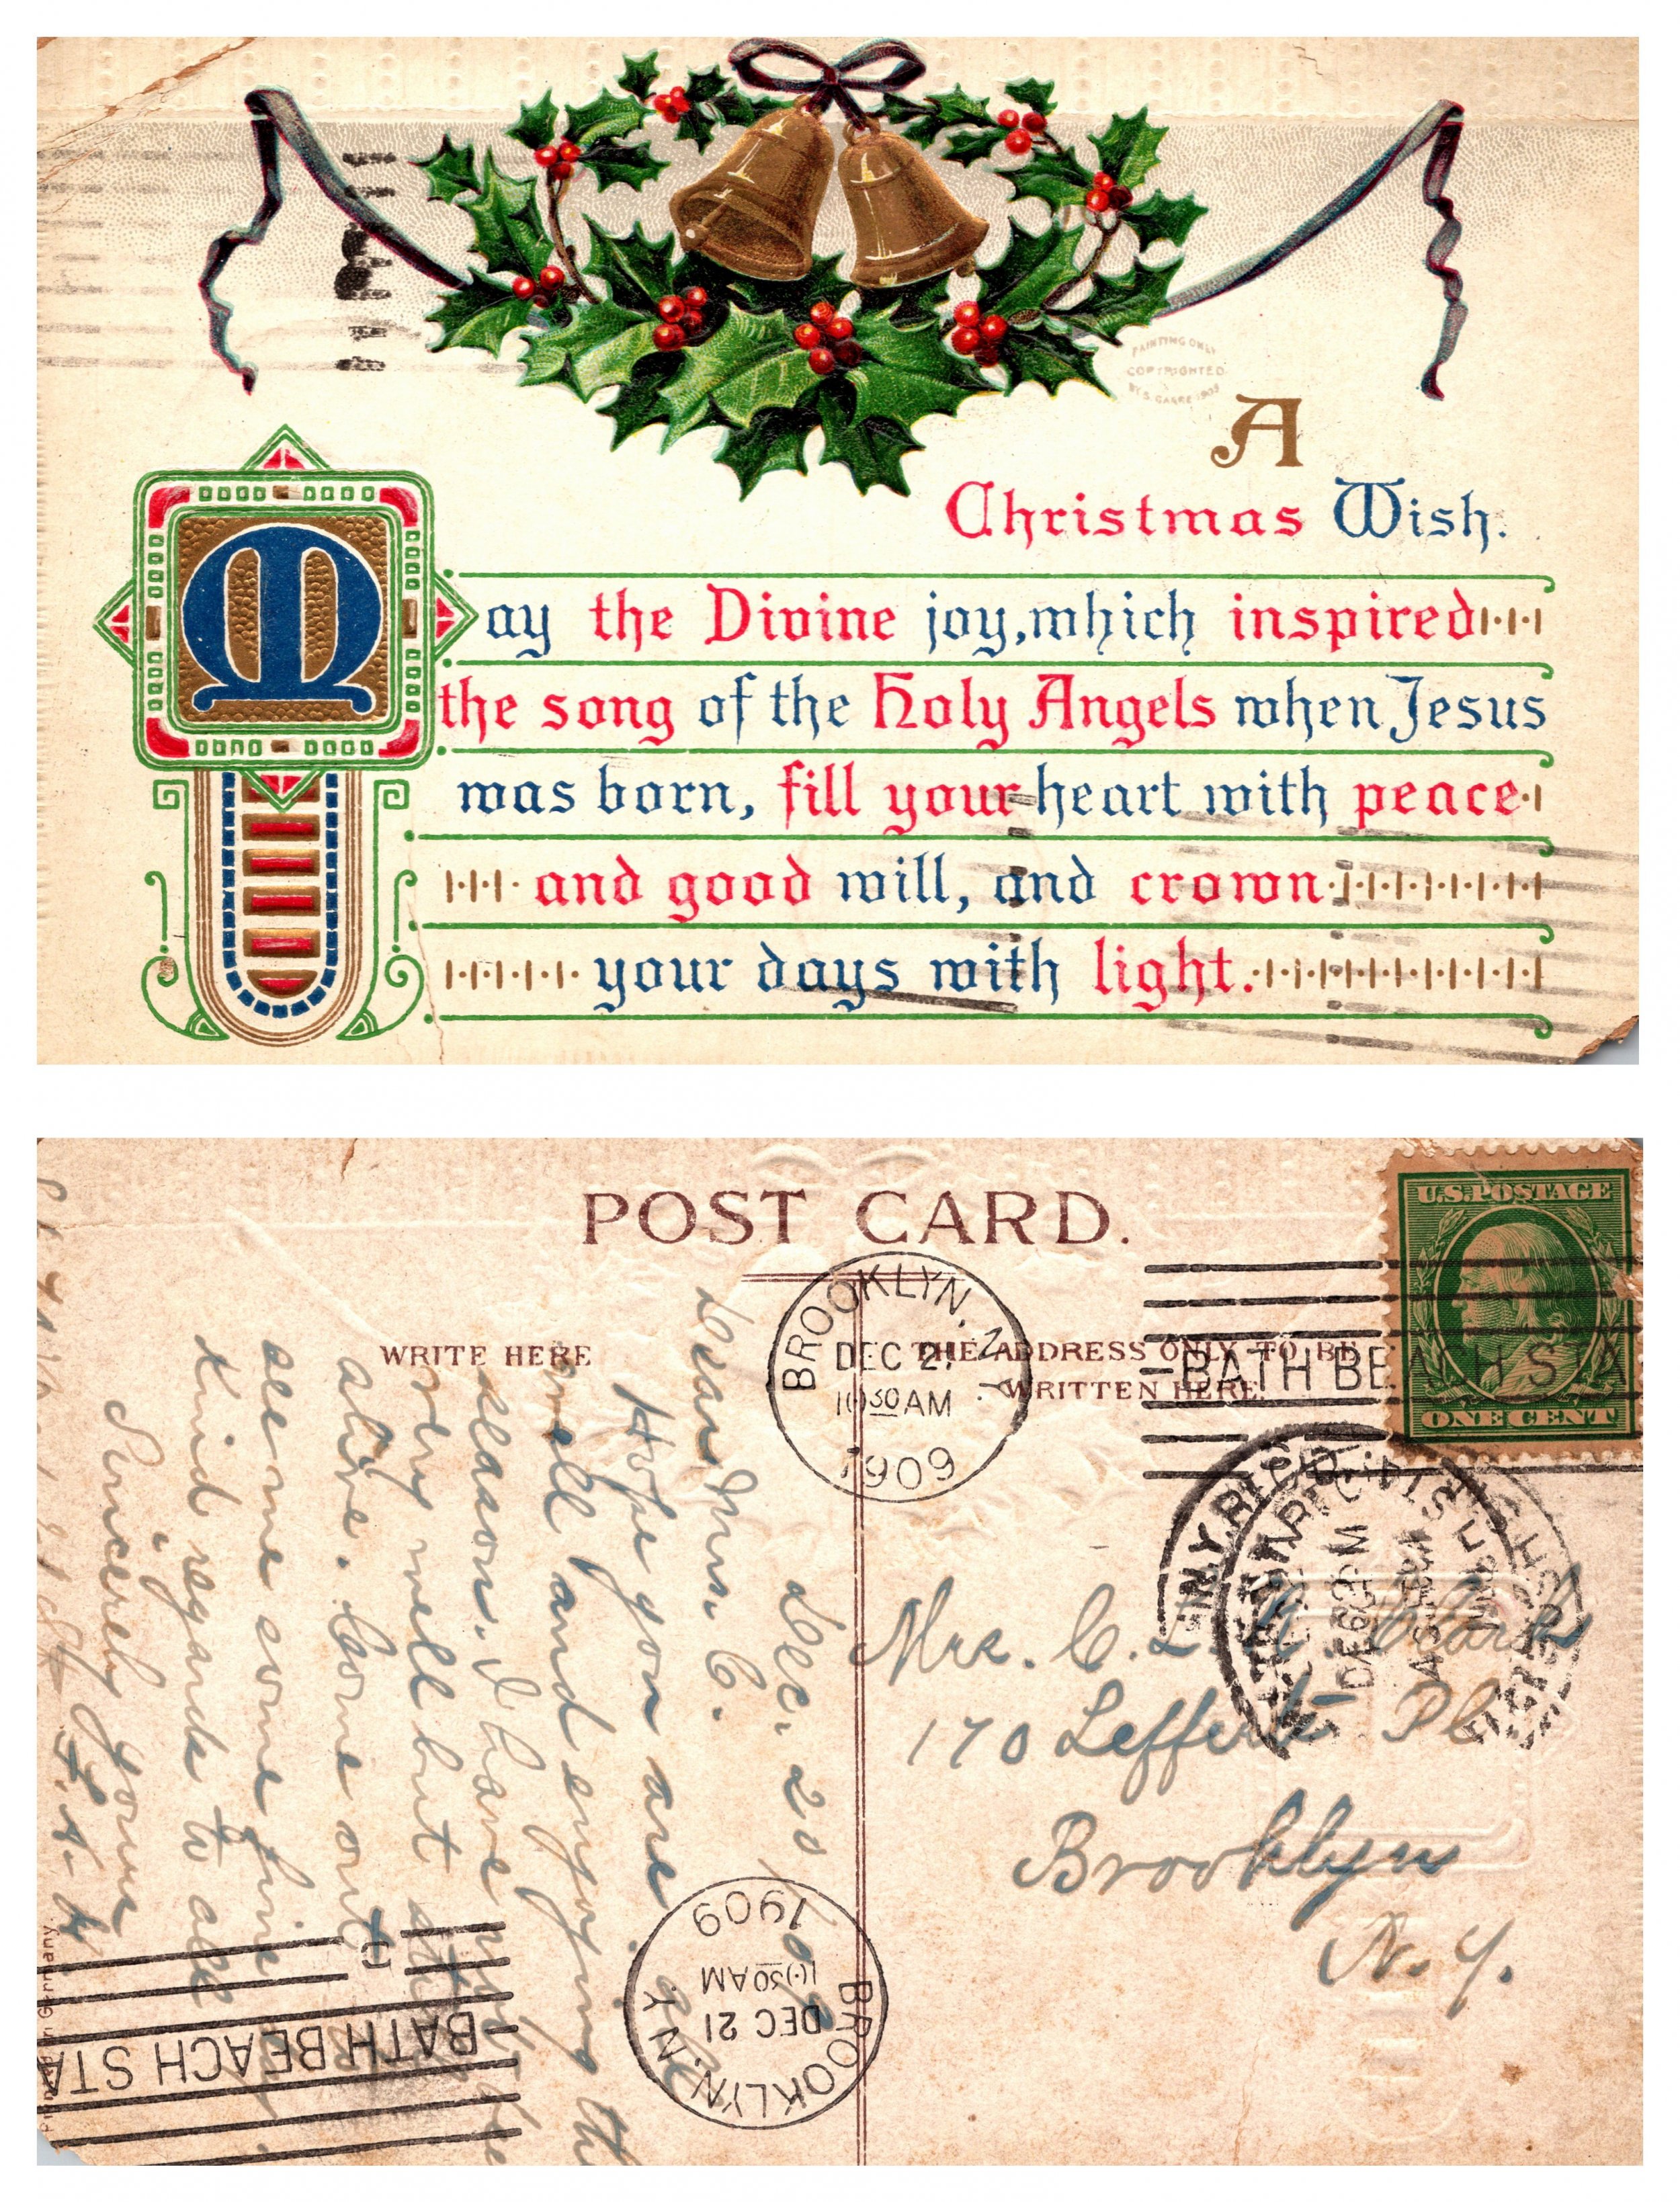 A
Christmas Wish.
May the Divine joy, which inspired
the song of the Holy Angels when Jesus
was born, fill your heart with peace
and good will, and crown
your days with light.
PAINTING ONLY
COPYRIGHTED
BY S. GARRE 1909
POST CARD.
WRITE HERE
THE ADDRESS ONLY TO BE
WRITTEN HERE
U.S. POSTAGE
ONE CENT
BROOKLYN, N.Y.
DEC 21
10 30 AM
1909
BATH BEACH STA
N.Y. REC'D
Mrs. C. L. Clark
170 Lefferts Pl
Brooklyn
N. Y.
Dec. 20, 1909
Dear Mrs. C.
Hope you are all
well and enjoying the
season. I have not been
very well but still
alive. Come out
see me some fine
kind regards to all
Sincerely yours
BROOKLYN, N.Y.
DEC 21
10 30 AM
1909
BATH BEACH STA
Printed in Germany.